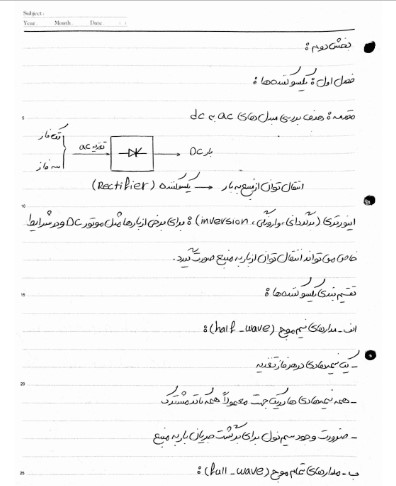 Subject:
Year Month Date
بخش دوم:
فصل اول: یکسوکننده‌ها:
مقدمه: هدف بررسی مبدل‌های ac به dc
تک فاز
سه فاز
تغذیه ac
بار DC
انتقال توان از منبع به بار → یکسوکننده (Rectifier)
اینورتری (برگردانی، وارونگی، inversion): برای برخی از بارها مثل موتور DC و در شرایط
خاص می‌تواند انتقال توان از بار به منبع صورت گیرد.
تقسیم‌بندی یکسوکننده‌ها:
الف - مدارهای نیم موج (half-wave):
- یک نیمه‌هادی در هر فاز تغذیه
- همه نیمه‌هادی‌ها در یک جهت معمولاً همه کاتد مشترک
- ضرورت وجود سیم نول برای برگشت جریان بار به منبع
ب - مدارهای تمام موج (full-wave):